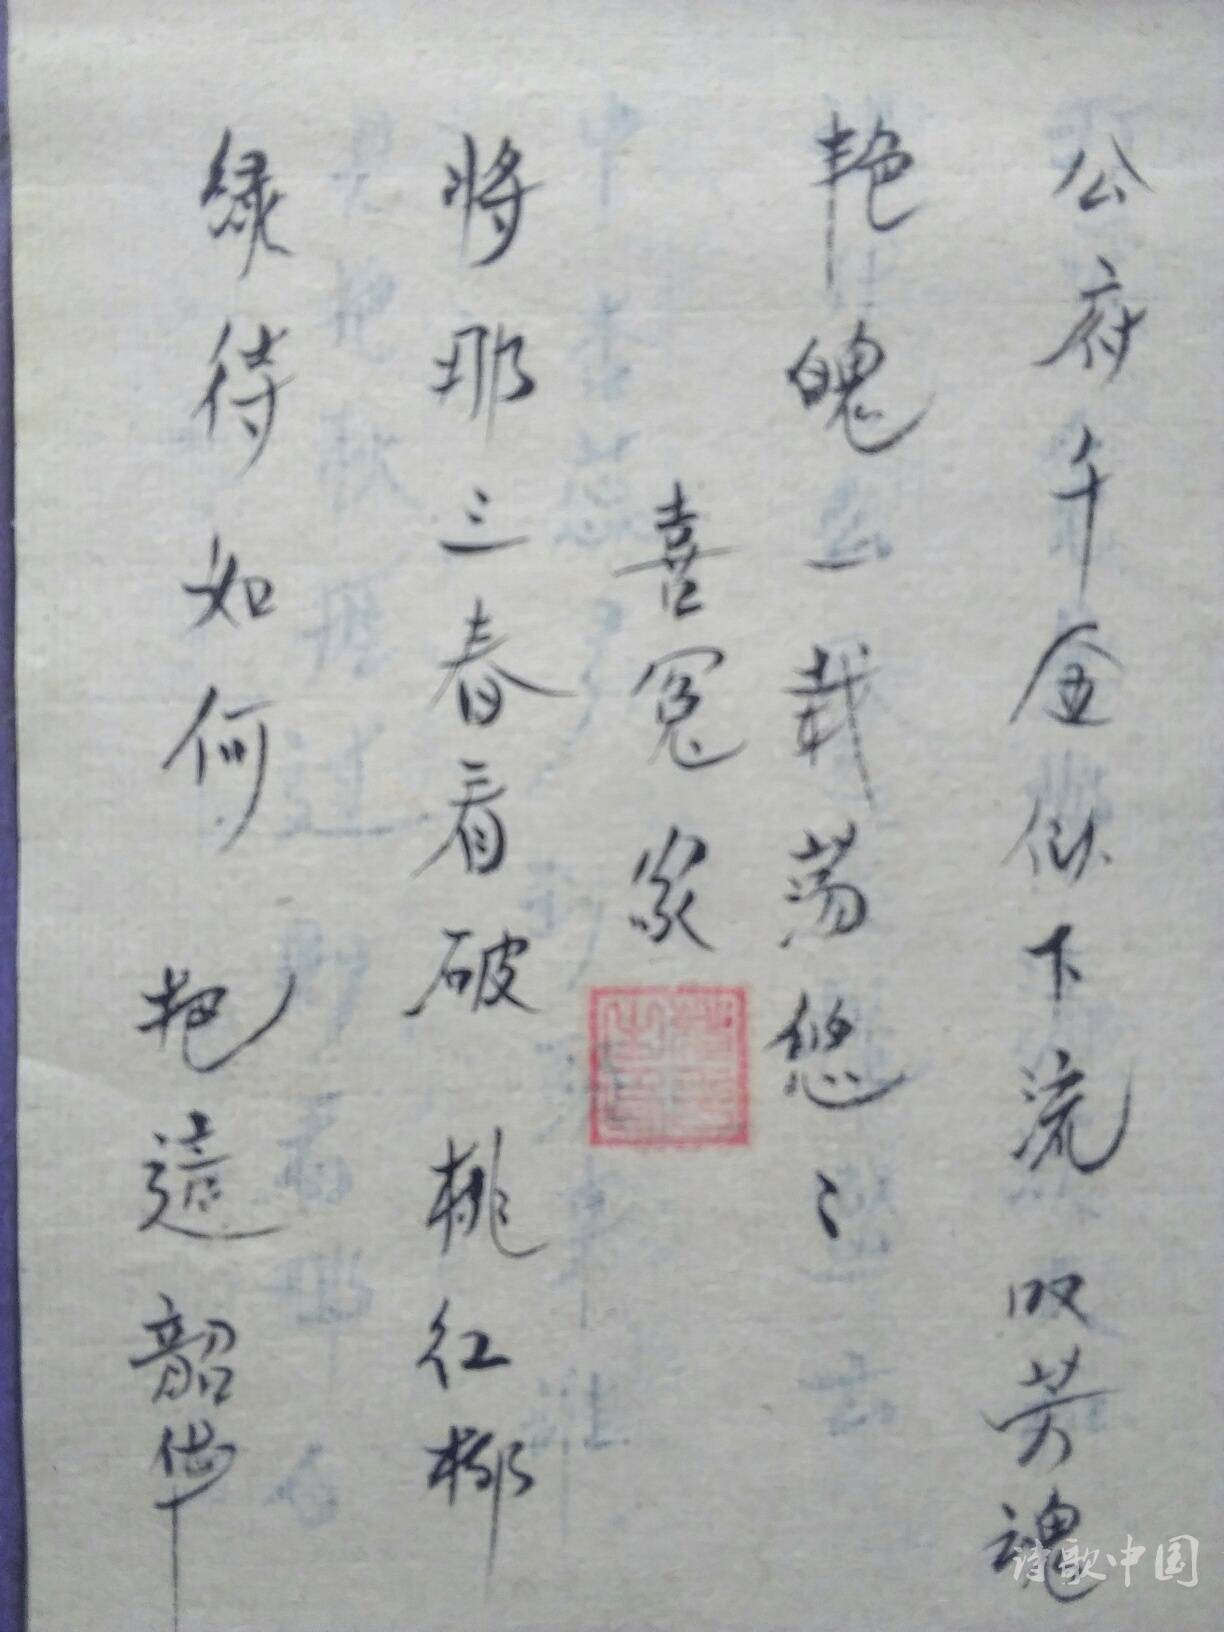 公府千金似下流 叹芳魂
艳魄一载荡悠〻
喜冤家
将那三春看破 桃红柳
绿待如何 把這韶华
诗歌中国